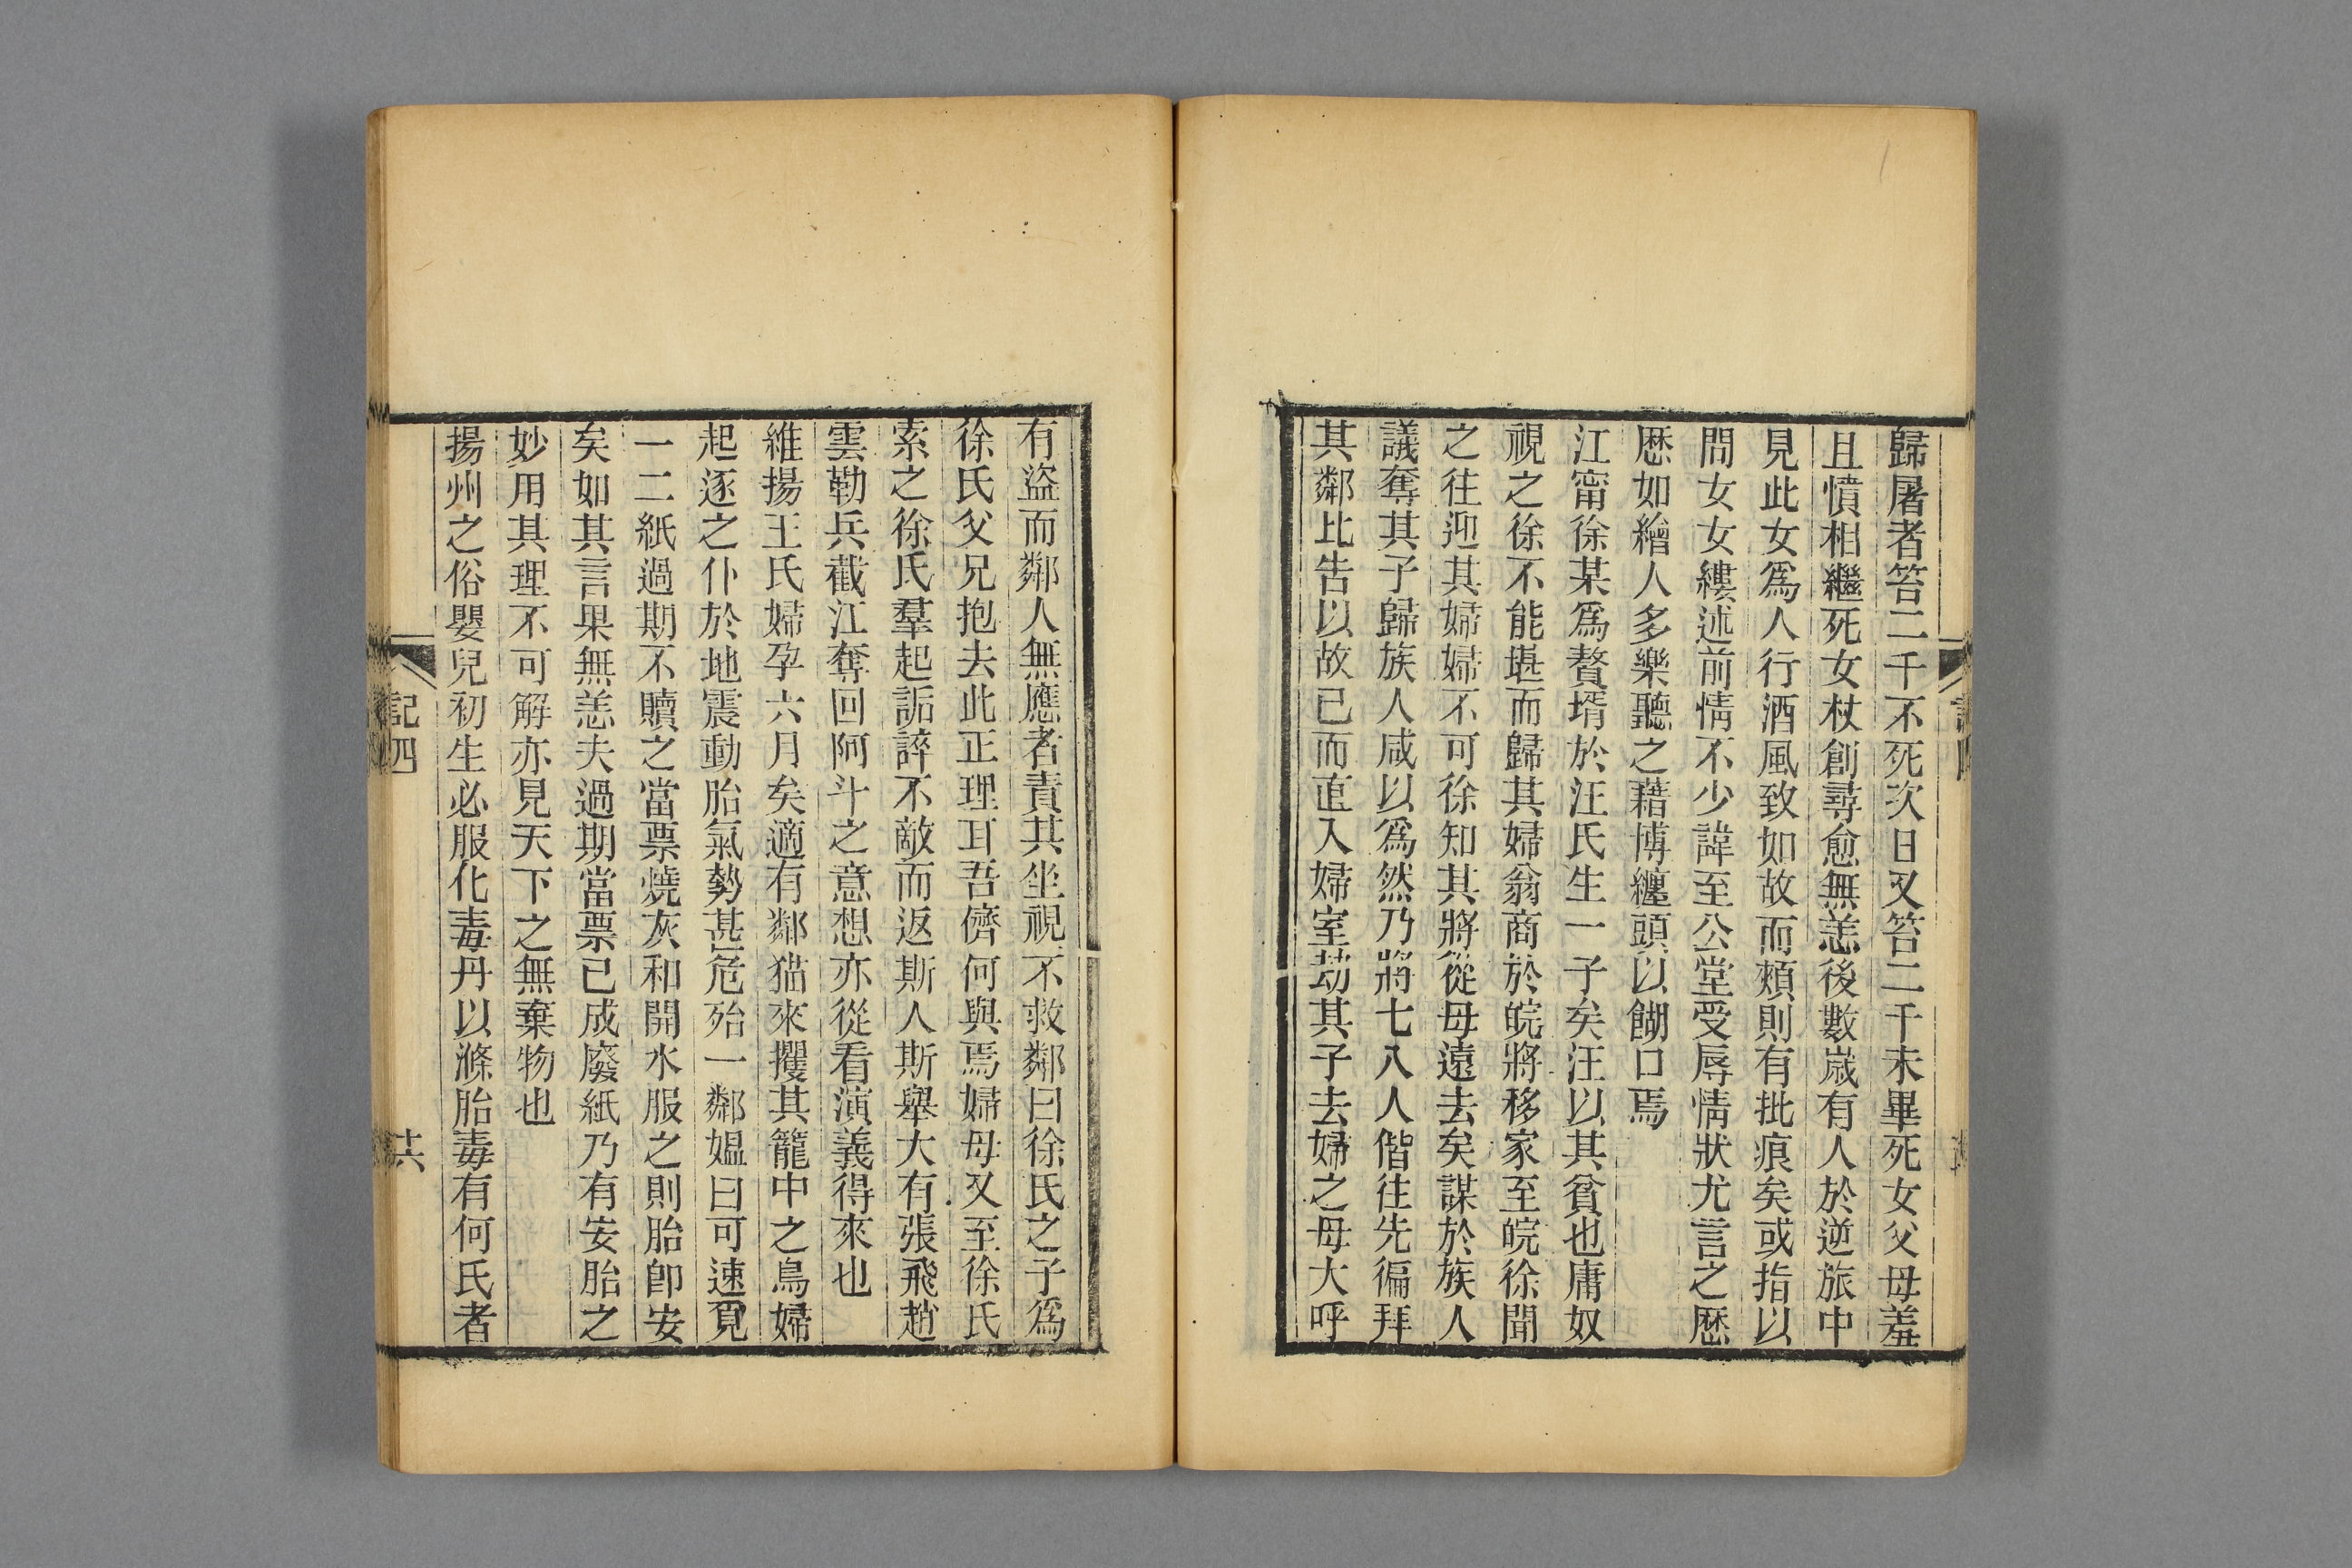 歸屠者笞二千不死次日又笞二千未畢死女父母羞
且憤相繼死女杖創尋愈無恙後數歲有人於逆旅中
見此女爲人行酒風致如故而頰則有批痕矣或指以
問女女縷述前情不少諱至公堂受辱情狀尤言之歷
歷如繪人多樂聽之藉博纏頭以餬口焉
江甯徐某爲贅壻於汪氏生一子矣汪以其貧也庸奴
視之徐不能堪而歸其婦翁商於皖將移家至皖徐聞
之往迎其婦婦不可徐知其將從母遠去矣謀於族人
議奪其子歸族人咸以爲然乃將七八人偕往先徧拜
其鄰比告以故已而直入婦室劫其子去婦之母大呼
有盜而鄰人無應者責其坐視不救鄰曰徐氏之子爲
徐氏父兄抱去此正理耳吾儕何與焉婦母又至徐氏
索之徐氏羣起詬誶不敵而返斯人斯舉大有張飛趙
雲勒兵截江奪回阿斗之意想亦從看演義得來也
維揚王氏婦孕六月矣適有鄰猫來攫其籠中之鳥婦
起逐之仆於地震動胎氣勢甚危殆一鄰媼曰可速覓
一二紙過期不贖之當票燒灰和開水服之則胎卽安
矣如其言果無恙夫過期當票已成廢紙乃有安胎之
妙用其理不可解亦見天下之無棄物也
揚州之俗嬰兒初生必服化毒丹以滌胎毒有何氏者
記四
十六